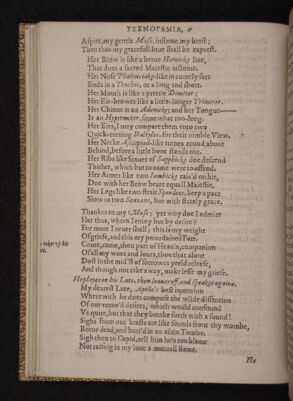 ΤΕΧΝΟΓΑΜΙΑ, or
Aspire, my gentle Muse, inflame my brest;
Then thus my gracefull loue shall be exprest.
Her Brow is like a braue Heroicke line,
That does a sacred Maiestie inshrine.
Her Nose Phaleuciake-like in comely sort
Ends in a Trochee, or a long and short.
Her Mouth is like a prettie Dimeter;
Her Eie-browes like a little-longer Trimeter.
Her Chinne is an Adonicke; and her Tongue——
Is an Hypermeter, somewhat too-long.
Her Eies, I may compare them vnto two
Quick-turning Dactyles, for their nimble View.
Her Necke Asclepiad-like turnes round about
Behind, before a little bone stands out.
Her Ribs like Staues of Sapphicks doe descend
Thither, which but to name were to offend.
Her Armes like two Iambicks rais'd on hie,
Doe with her Brow beare equall Maiestie,
Her Legs like two strait Spondees, keep a pace
Slow as two Scazons, but with stately grace.
Thankes to my Muse; yet why doe I admire
Her thus, whom I enioy but by desire?
For more I neuer shall; this is my weight
Of griefe, and this my preordained Fate.
Come, come, thou part of Heau'n, companion
Of all my woes and houres, thou that alone
Dost in the mid'st of sorrowes yeeld releefe,
And though not take away, make lesse my griefe.
He playes on his Lute, then leaues off, and speakes againe.
My dearest Lute, Apollo's best inuention
Wherewith he does compose the wilde dissention
Of our vntun'd desires, which would confound
Vs quite, but that they breake forth with a sound!
Sighs from our brests are like sounds from thy wombe,
Borne dead, and buri'd in an aërie Tombe.
Sigh then to Cupid, tell him he's too blame
Not raising in my loue a mutuall flame.
He